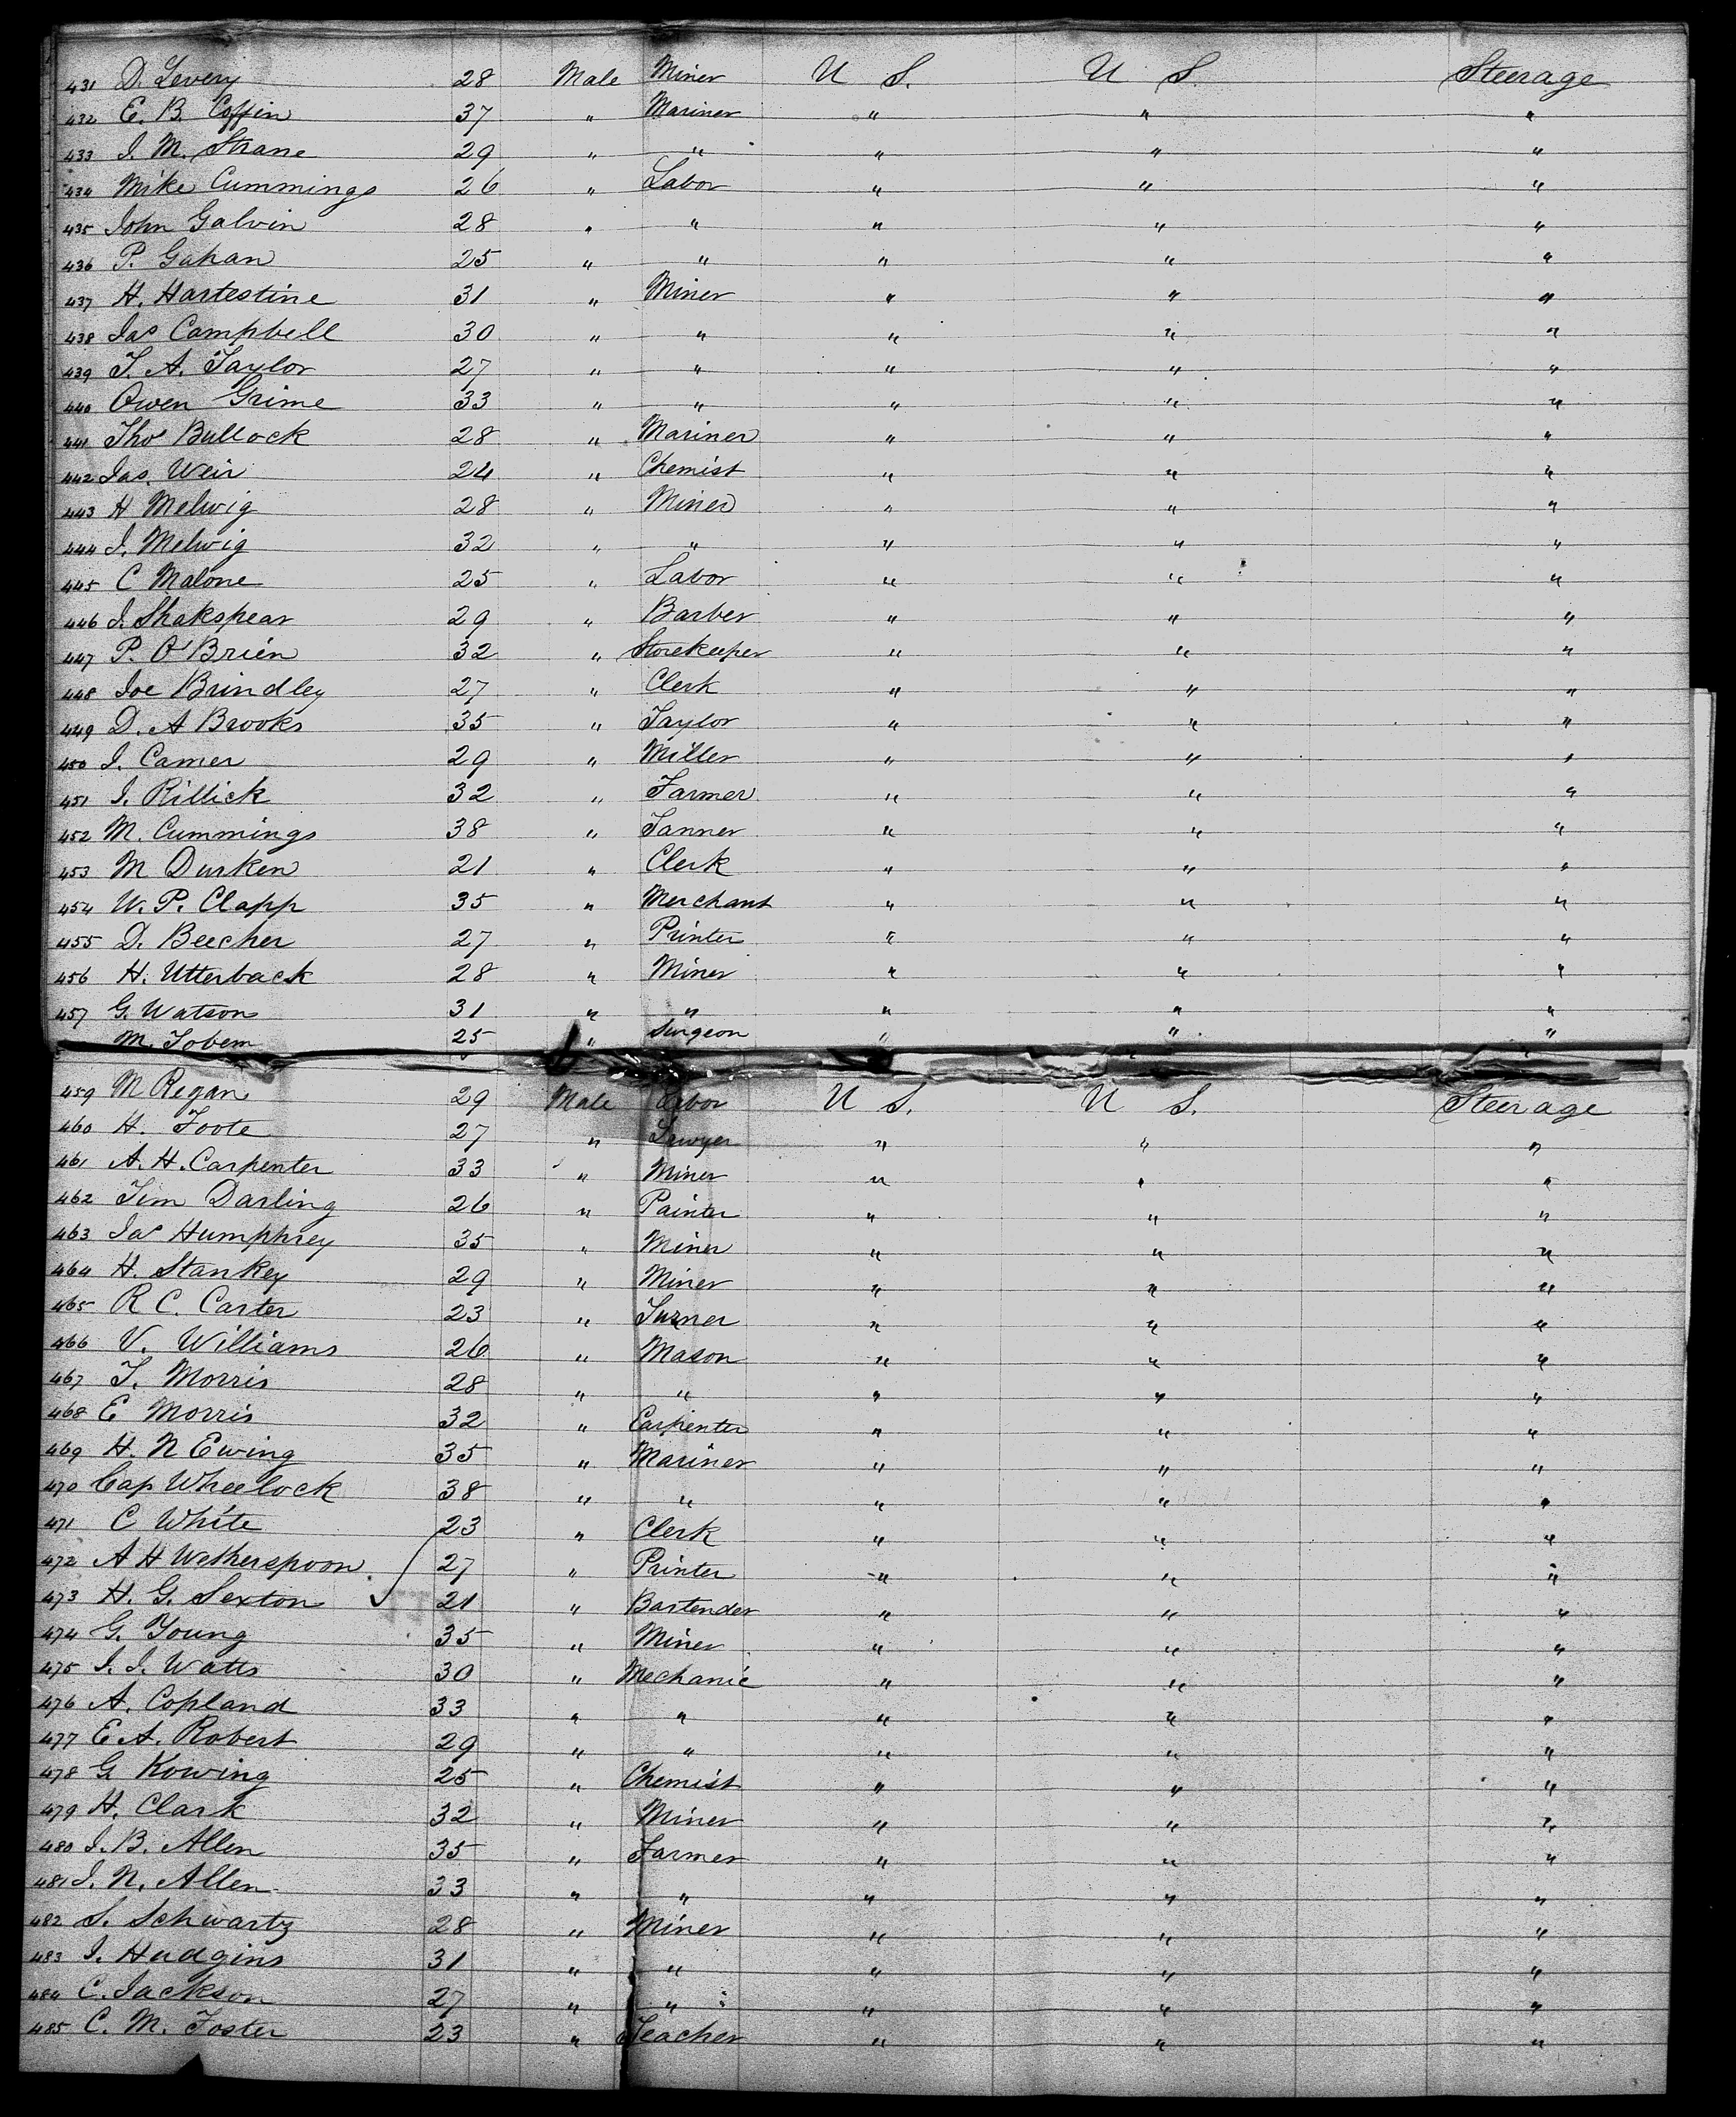 431 D. Levery 28 Male Miner U S. U S. Steerage
432 E. B. Coffin 37 " Mariner " " "
433 I. M. Strane 29 " " " " "
434 Mike Cummings 26 " Labor " " "
435 John Galvin 28 " " " " "
436 P. Gahan 25 " " " " "
437 H. Hartestine 31 " Miner " " "
438 Jas Campbell 30 " " " " "
439 T. A. Taylor 27 " " " " "
440 Owen Grime 33 " " " " "
441 Tho Bullock 28 " Mariner " " "
442 Jas. Weir 24 " Chemist " " "
443 H Melwig 28 " Miner " " "
444 I. Melwig 32 " " " " "
445 C Malone 25 " Labor " " "
446 I. Shakspear 29 " Barber " " "
447 P. O'Brien 32 " Storekeeper " " "
448 Joe Brindley 27 " Clerk " " "
449 D. A Brooks 35 " Taylor " " "
450 I. Camer 29 " Miller " " "
451 I. Rillick 32 " Farmer " " "
452 M. Cummings 38 " Tanner " " "
453 M Durken 21 " Clerk " " "
454 W. P. Clapp 35 " Merchant " " "
455 D. Beecher 27 " Printer " " "
456 H. Utterback 28 " Miner " " "
457 G. Watson 31 " " " " "
M. Tobem 25 " Surgeon " " "
459 M Regan 29 Male Labor U S. U S. Steerage
460 H. Foote 27 " Lawyer " " "
461 A. H. Carpenter 33 " Miner " " "
462 Tim Darling 26 " Painter " " "
463 Jas Humphrey 35 " Miner " " "
464 H. Stankey 29 " Miner " " "
465 R C. Carter 23 " Turner " " "
466 V. Williams 26 " Mason " " "
467 T. Morris 28 " " " " "
468 E Morris 32 " Carpenter " " "
469 H. N Ewing 35 " Mariner " " "
470 Cap Wheelock 38 " " " " "
471 C White 23 " Clerk " " "
472 A H Wetherspoon 27 " Printer " " "
473 H. G. Sexton 21 " Bartender " " "
474 G. Young 35 " Miner " " "
475 I. I. Watts 30 " Mechanic " " "
476 A. Copland 33 " " " " "
477 E A. Robert 29 " " " " "
478 G Kowing 25 " Chemist " " "
479 H. Clark 32 " Miner " " "
480 I. B. Allen 35 " Farmer " " "
481 I. N. Allen 33 " " " " "
482 S. Schwartz 28 " Miner " " "
483 I. Hudgins 31 " " " " "
484 C. Jackson 27 " " " " "
485 C. M. Foster 23 " Teacher " " "